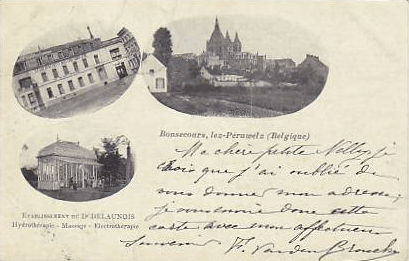 Bonsecours, lez-Péruwelz (Belgique)
Ma chère petite Nelly, je
crois que j'ai oublié de
vous donner mon adresse,
je vous envoie donc cette
carte avec mon affectueux
Souvenir F. Van den Broucke
ETABLISSEMENT DU Dr DELAUNOIS
Hydrothérapie - Massage - Electrothérapie